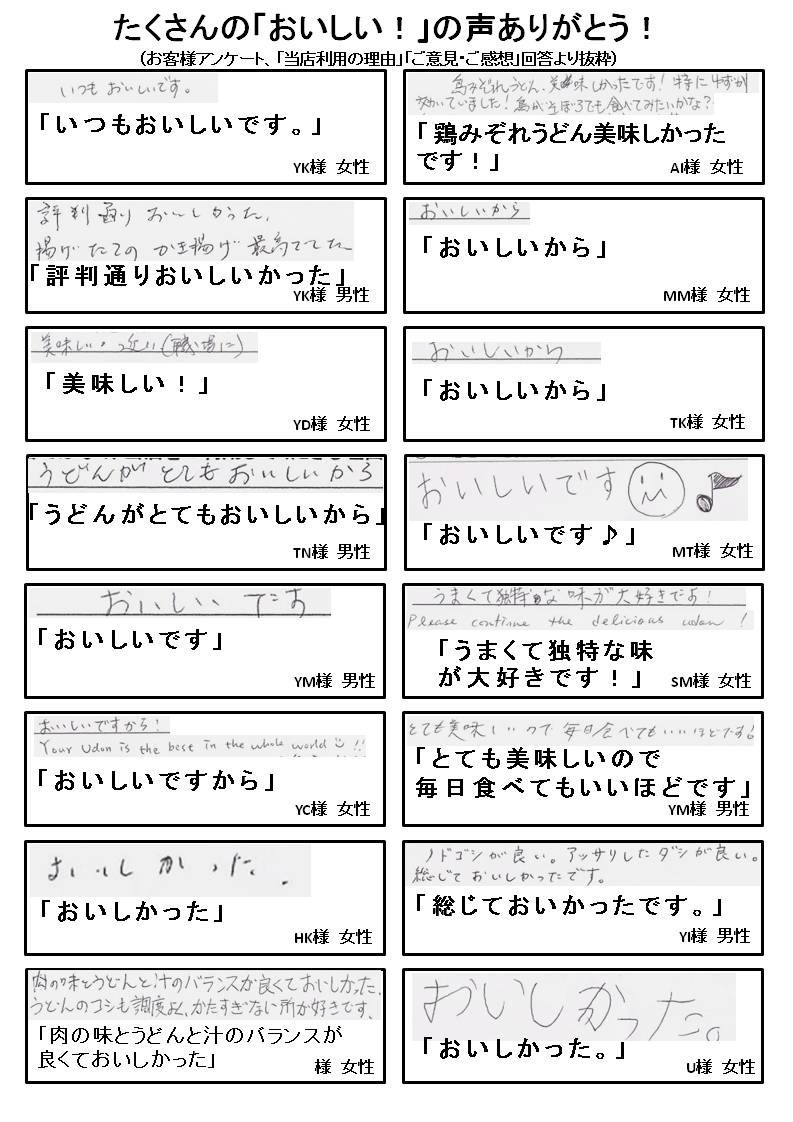 たくさんの「おいしい！」の声ありがとう！
（お客様アンケート、「当店利用の理由」「ご意見・ご感想」回答より抜粋）
いつもおいしいです。
「いつもおいしいです。」
YK様 女性
鳥みぞれうどん、美味しかったです！特にゆずが
効いていました！鳥がそぼろでも食べてみたいかな？
「鶏みぞれうどん美味しかった
です！」
AI様 女性
評判通りおいしかった。
揚げたてのかき揚げ最高でした
「評判通りおいしいかった」
YK様 男性
おいしいから
「おいしいから」
MM様 女性
美味しい・近い（職場に）
「美味しい！」
YD様 女性
おいしいから
「おいしいから」
TK様 女性
うどんがとてもおいしいから
「うどんがとてもおいしいから」
TN様 男性
おいしいです
「おいしいです♪」
MT様 女性
おいしいです
「おいしいです」
YM様 男性
うまくて独特な味が大好きです！
Please continue the delicious udon !
「うまくて独特な味
が大好きです！」
SM様 女性
おいしいですから！
Your Udon is the best in the whole world !!
「おいしいですから」
YC様 女性
とても美味しいので毎日食べてもいいほどです！
「とても美味しいので
毎日食べてもいいほどです」
YM様 男性
おいしかった.
「おいしかった」
HK様 女性
ノドゴシが良い。アッサリしたダシが良い。
総じておいしかったです。
「総じておいかったです。」
YI様 男性
肉の味とうどんと汁のバランスが良くておいしかった。
うどんのコシも調度よく、かたすぎない所が好きです。
「肉の味とうどんと汁のバランスが
良くておいしかった」
様 女性
おいしかった。
「おいしかった。」
U様 女性